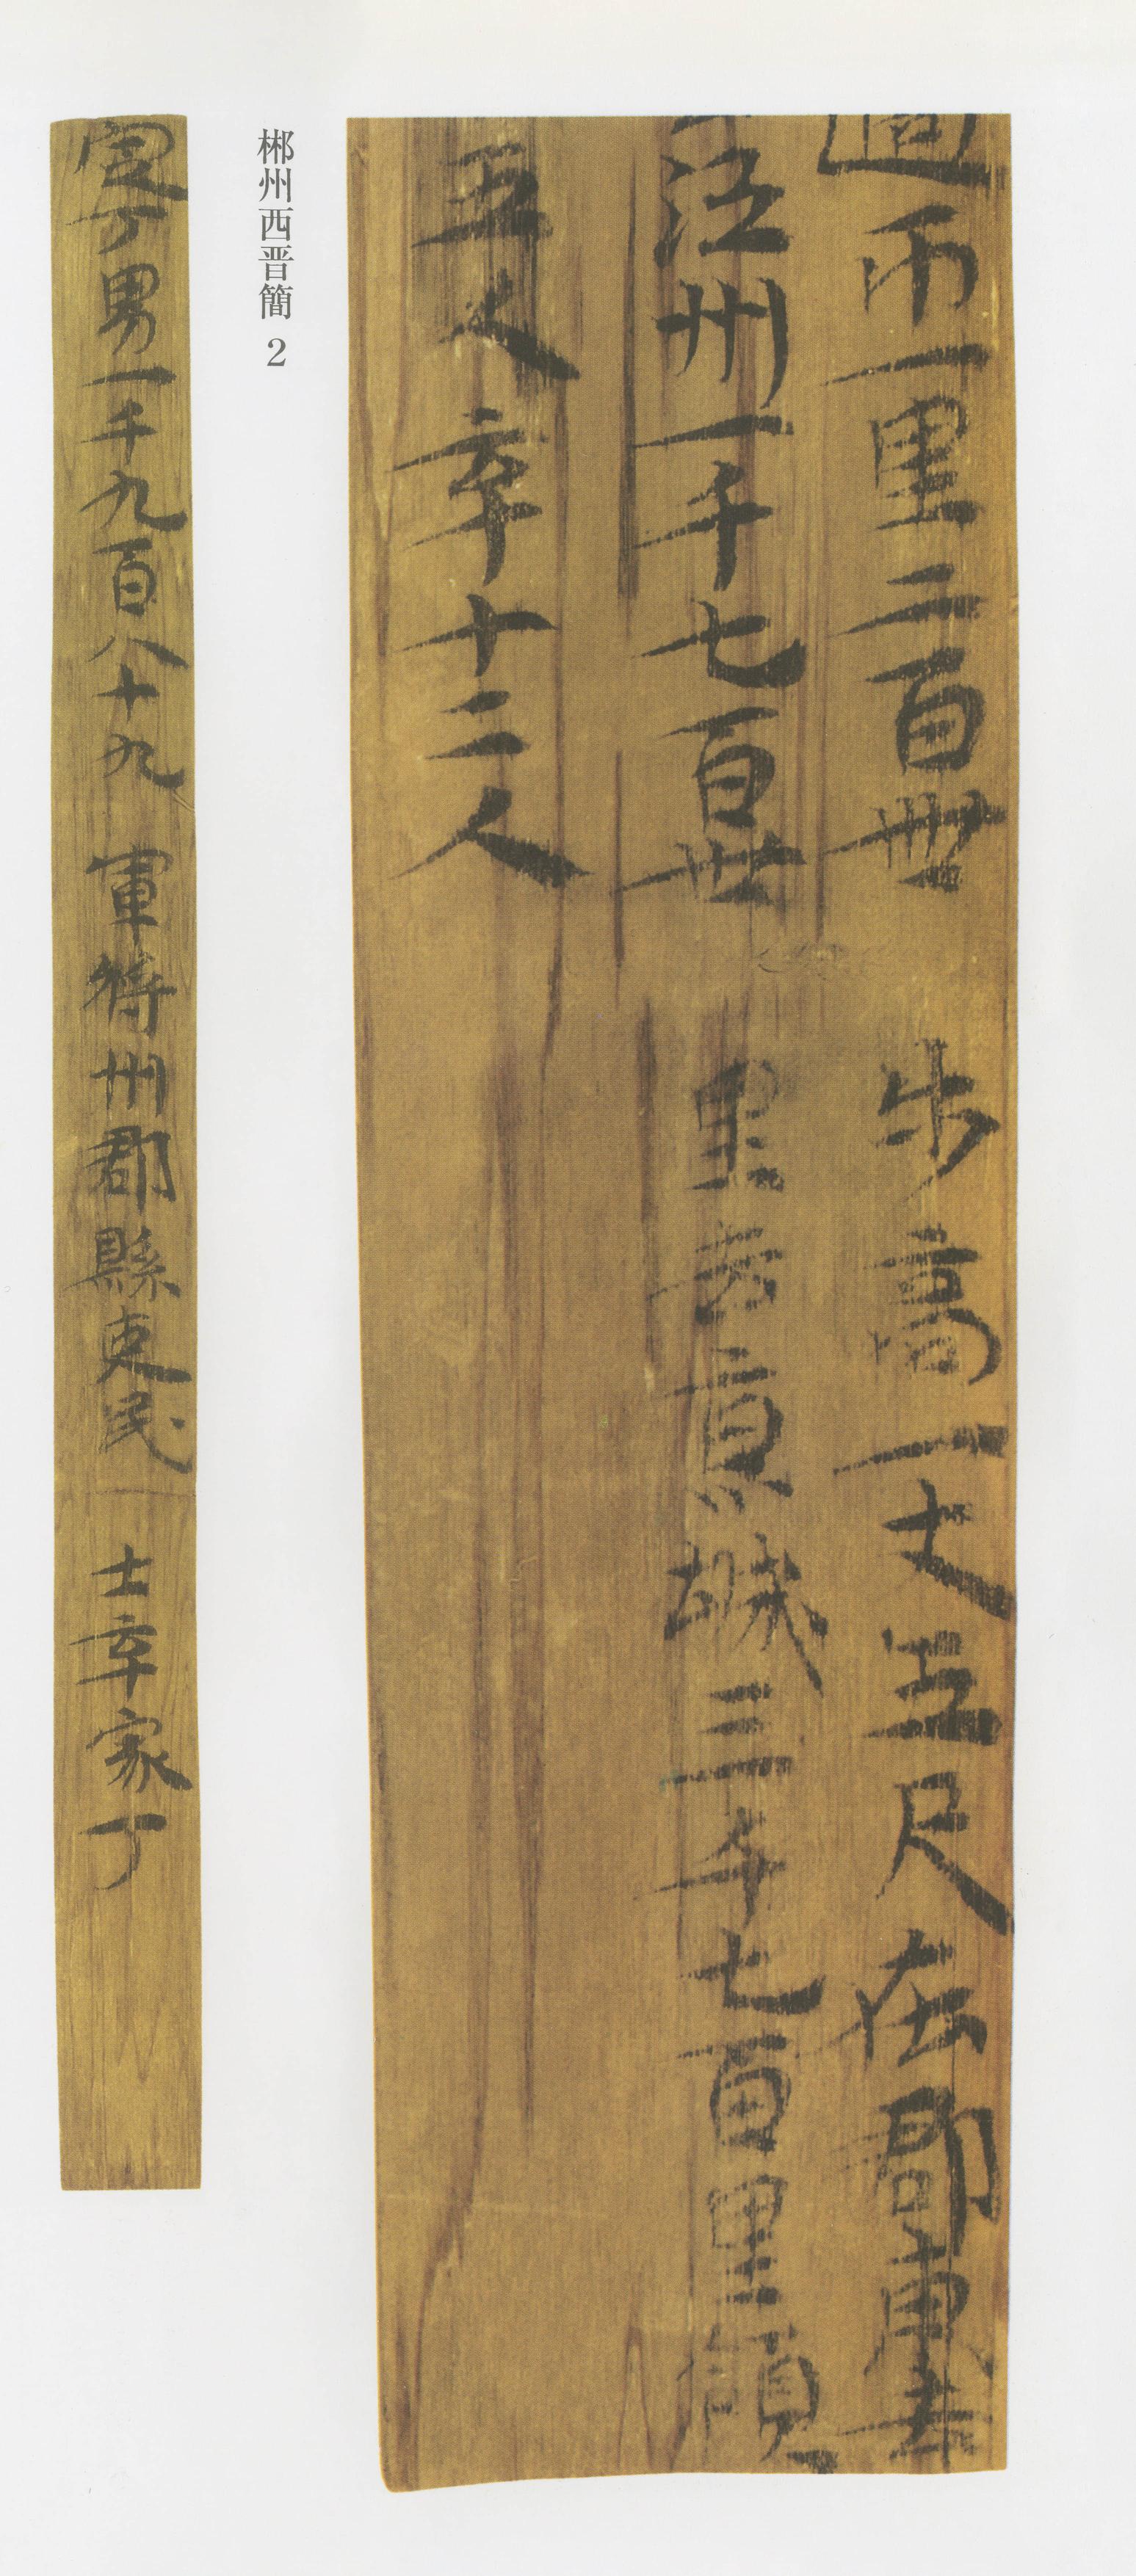 帀一里二百卌 步高一丈五尺在郡東去
江州一千七百卅 里去京城三千七百里領
五人 卒十二人
郴州西晋簡 2
定丁男一千九百八十九 軍將州郡縣吏民 士卒家丁